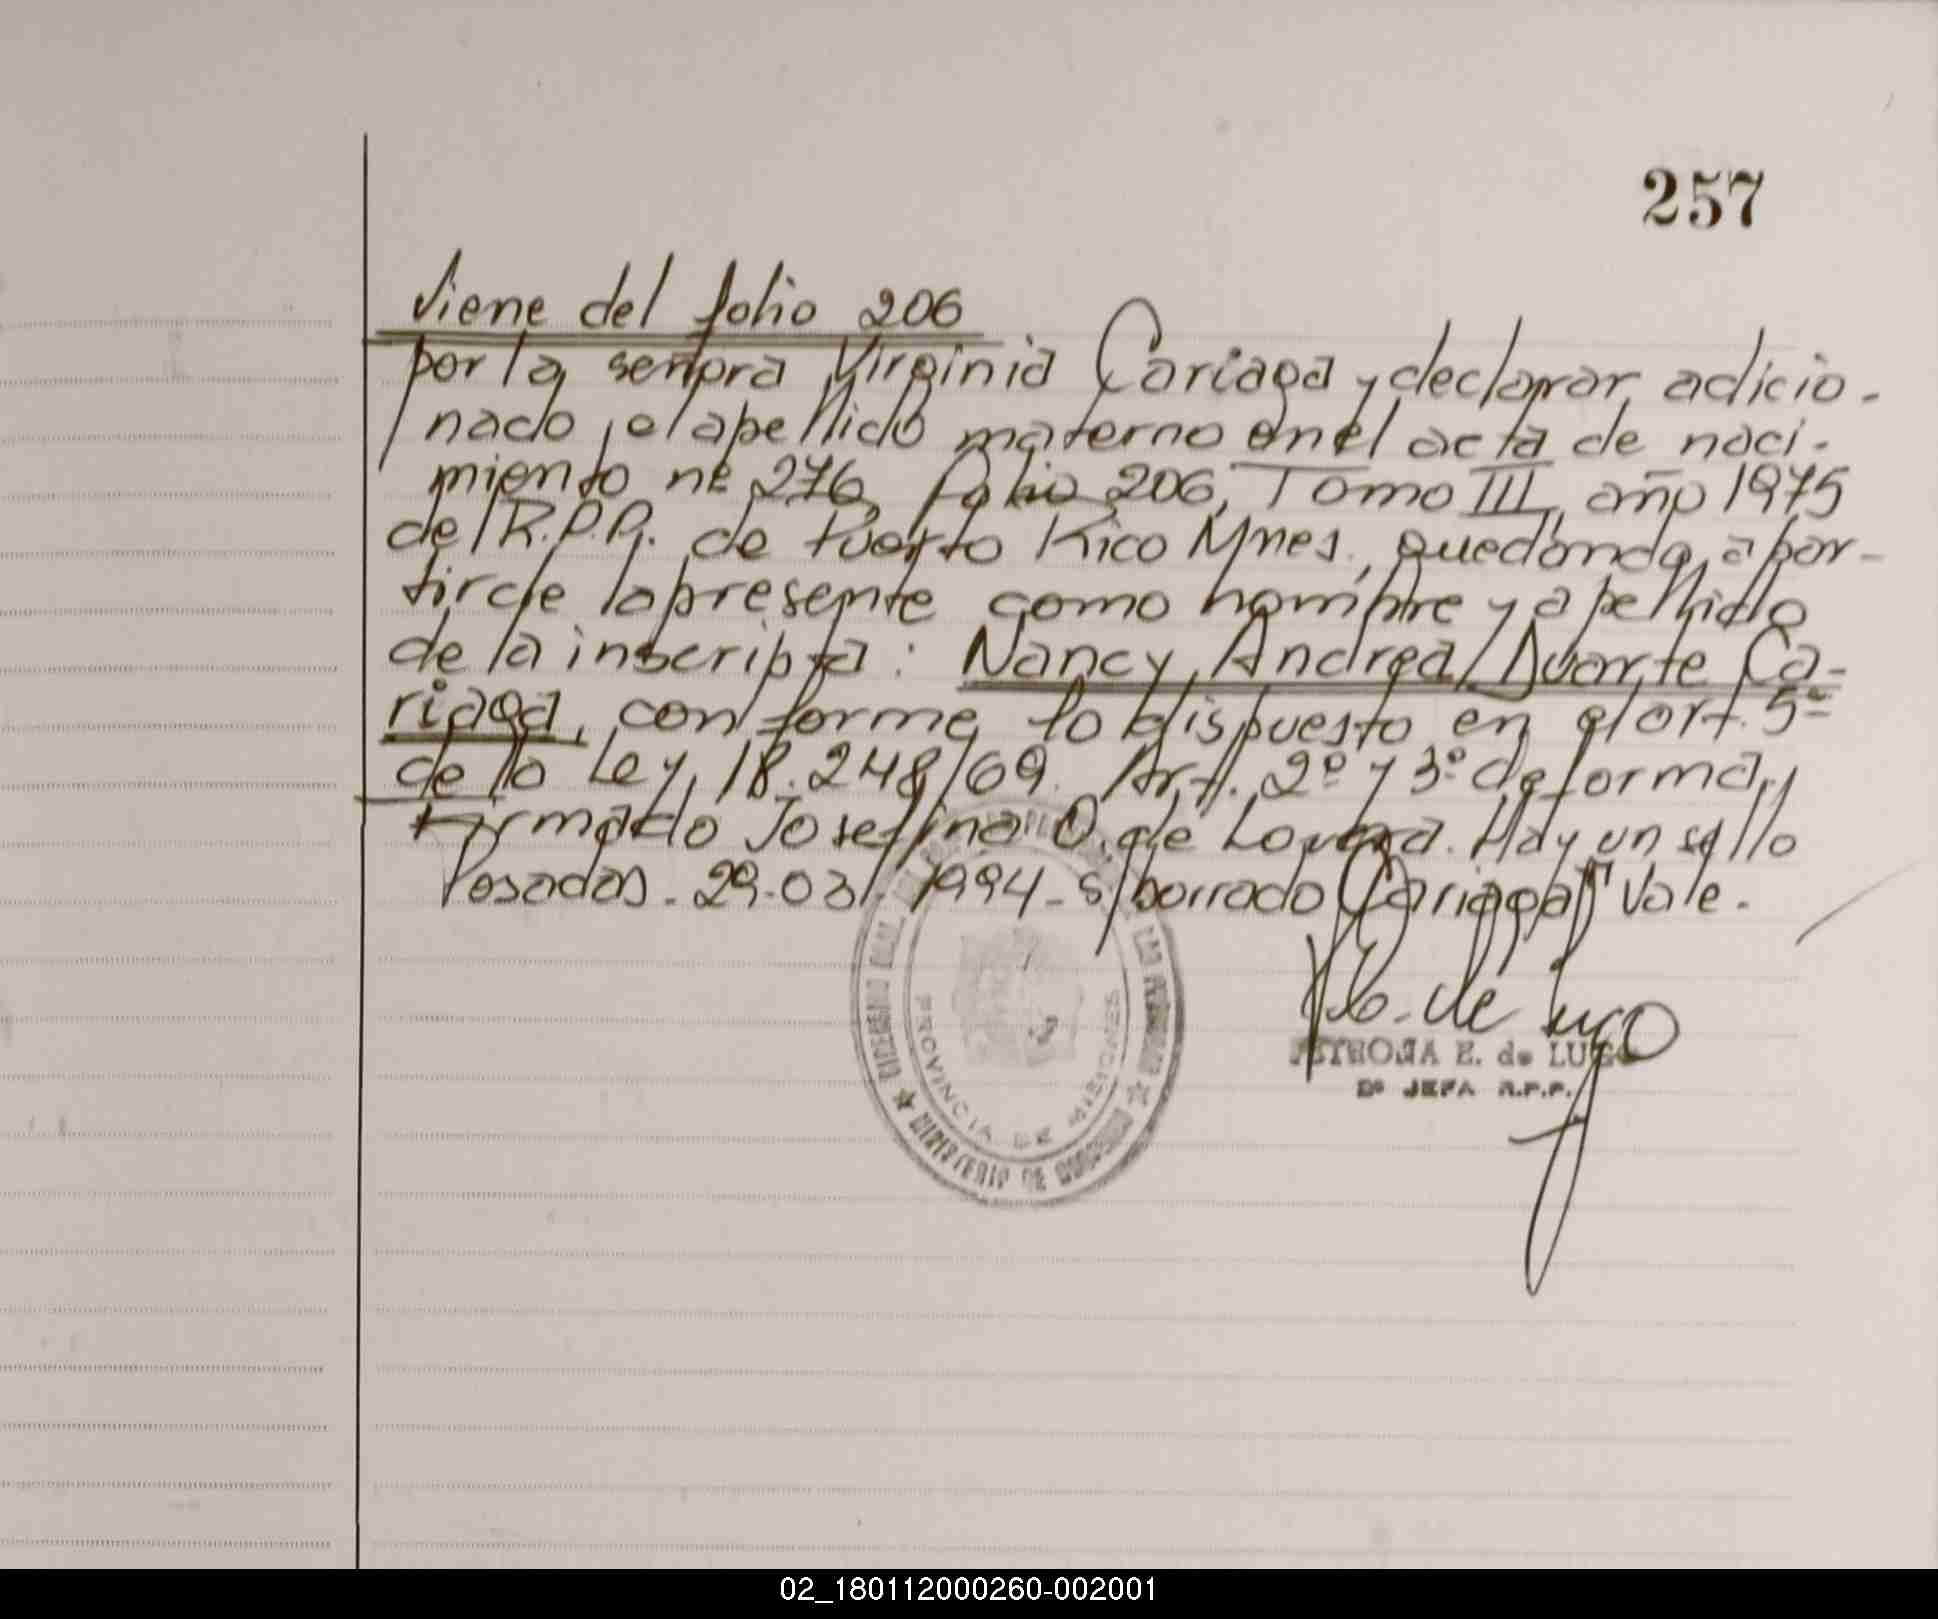 257
Viene del folio 206
por la señora Virginia Cariaga y declarar adicio-
nado el apellido materno en el acta de naci-
miento nº 276, folio 206, Tomo III, año 1975
del R.P.P. de Puerto Rico Mnes, quedando a par-
tir de la presente como nombre y apellido
de la inscripta: Nancy Andrea Duarte Ca-
riaga, conforme lo dispuesto en el art. 5º
de la Ley 18.248/69. Art. 2º y 3º de forma,
Firmado Josefina O. de Lovera. Hay un sello
Posadas. 29-03-1994- s/borrado "Cariaga" Vale.
de Lugo
PETRONA E. de LUGO
2º JEFA R.P.P.
PROVINCIA DE MISIONES
MINISTERIO DE GOBIERNO
02_180112000260-002001